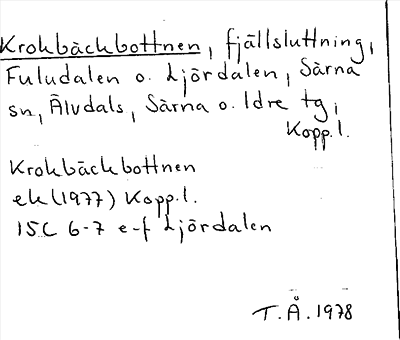 Krokbäckbottnen, fjällsluttning,
Fuludalen o. Ljördalen, Särna
sn, Älvdals, Särna o. Idre tg,
Kopp.l.
Krokbäckbottnen
ek (1977) Kopp.l.
15C 6-7 e-f Ljördalen
T.Å. 1978